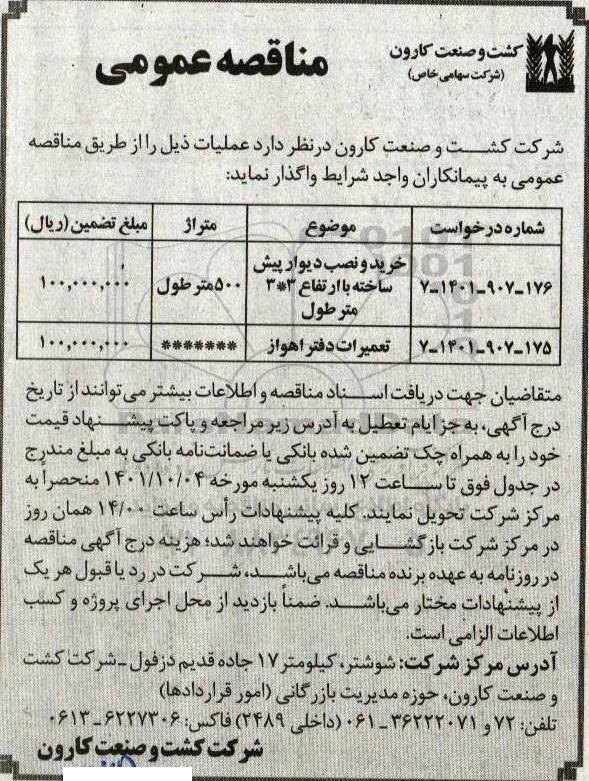 کشت و صنعت کارون
(شرکت سهامی خاص)
مناقصه عمومی
شرکت کشت و صنعت کارون درنظر دارد عملیات ذیل را از طریق مناقصه
عمومی به پیمانکاران واجد شرایط واگذار نماید:
شماره درخواست موضوع متراژ مبلغ تضمین (ریال)
۷-۱۴۰۱-۹۰۷-۱۷۶ خرید و نصب دیوار پیش ساخته با ارتفاع ۳*۳ متر طول ۵۰۰ متر طول ۱۰۰,۰۰۰,۰۰۰
۷-۱۴۰۱-۹۰۷-۱۷۵ تعمیرات دفتر اهواز ******* ۱۰۰,۰۰۰,۰۰۰
متقاضیان جهت دریافت اسناد مناقصه و اطلاعات بیشتر می توانند از تاریخ
درج آگهی، به جز ایام تعطیل به آدرس زیر مراجعه و پاکت پیشنهاد قیمت
خود را به همراه چک تضمین شده بانکی یا ضمانت‌نامه بانکی به مبلغ مندرج
در جدول فوق تا ساعت ۱۲ روز یکشنبه مورخه ۱۴۰۱/۱۰/۰۴ منحصراً به
مرکز شرکت تحویل نمایند. کلیه پیشنهادات رأس ساعت ۱۴/۰۰ همان روز
در مرکز شرکت بازگشایی و قرائت خواهند شد؛ هزینه درج آگهی مناقصه
در روزنامه به عهده برنده مناقصه می‌باشد، شرکت در رد یا قبول هر یک
از پیشنهادات مختار می‌باشد. ضمناً بازدید از محل اجرای پروژه و کسب
اطلاعات الزامی است.
آدرس مرکز شرکت: شوشتر، کیلومتر ۱۷ جاده قدیم دزفول - شرکت کشت
و صنعت کارون، حوزه مدیریت بازرگانی (امور قراردادها)
تلفن: ۷۲ و ۳۶۲۲۲۰۷۱-۰۶۱ (داخلی ۲۴۸۹) فاکس: ۶۲۲۷۳۰۶-۰۶۱۳
شرکت کشت و صنعت کارون